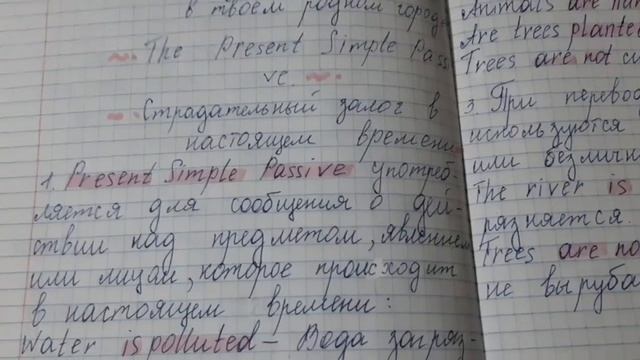 в твоем родном города
The Present Simple Pass
vс.
Страдательный залог в
настоящем времени
1. Present Simple Passive употреб-
ляется для сообщения о дей-
ствии над предметом, явлением
или лицам, которое происходит
в настоящем времени:
Water is polluted – Вода загряз-
Animals are hun
Are trees plante
Trees are not cu
3. При перевод
используются
или безличн
The river is
рязняется.
Trees are no
не выруба